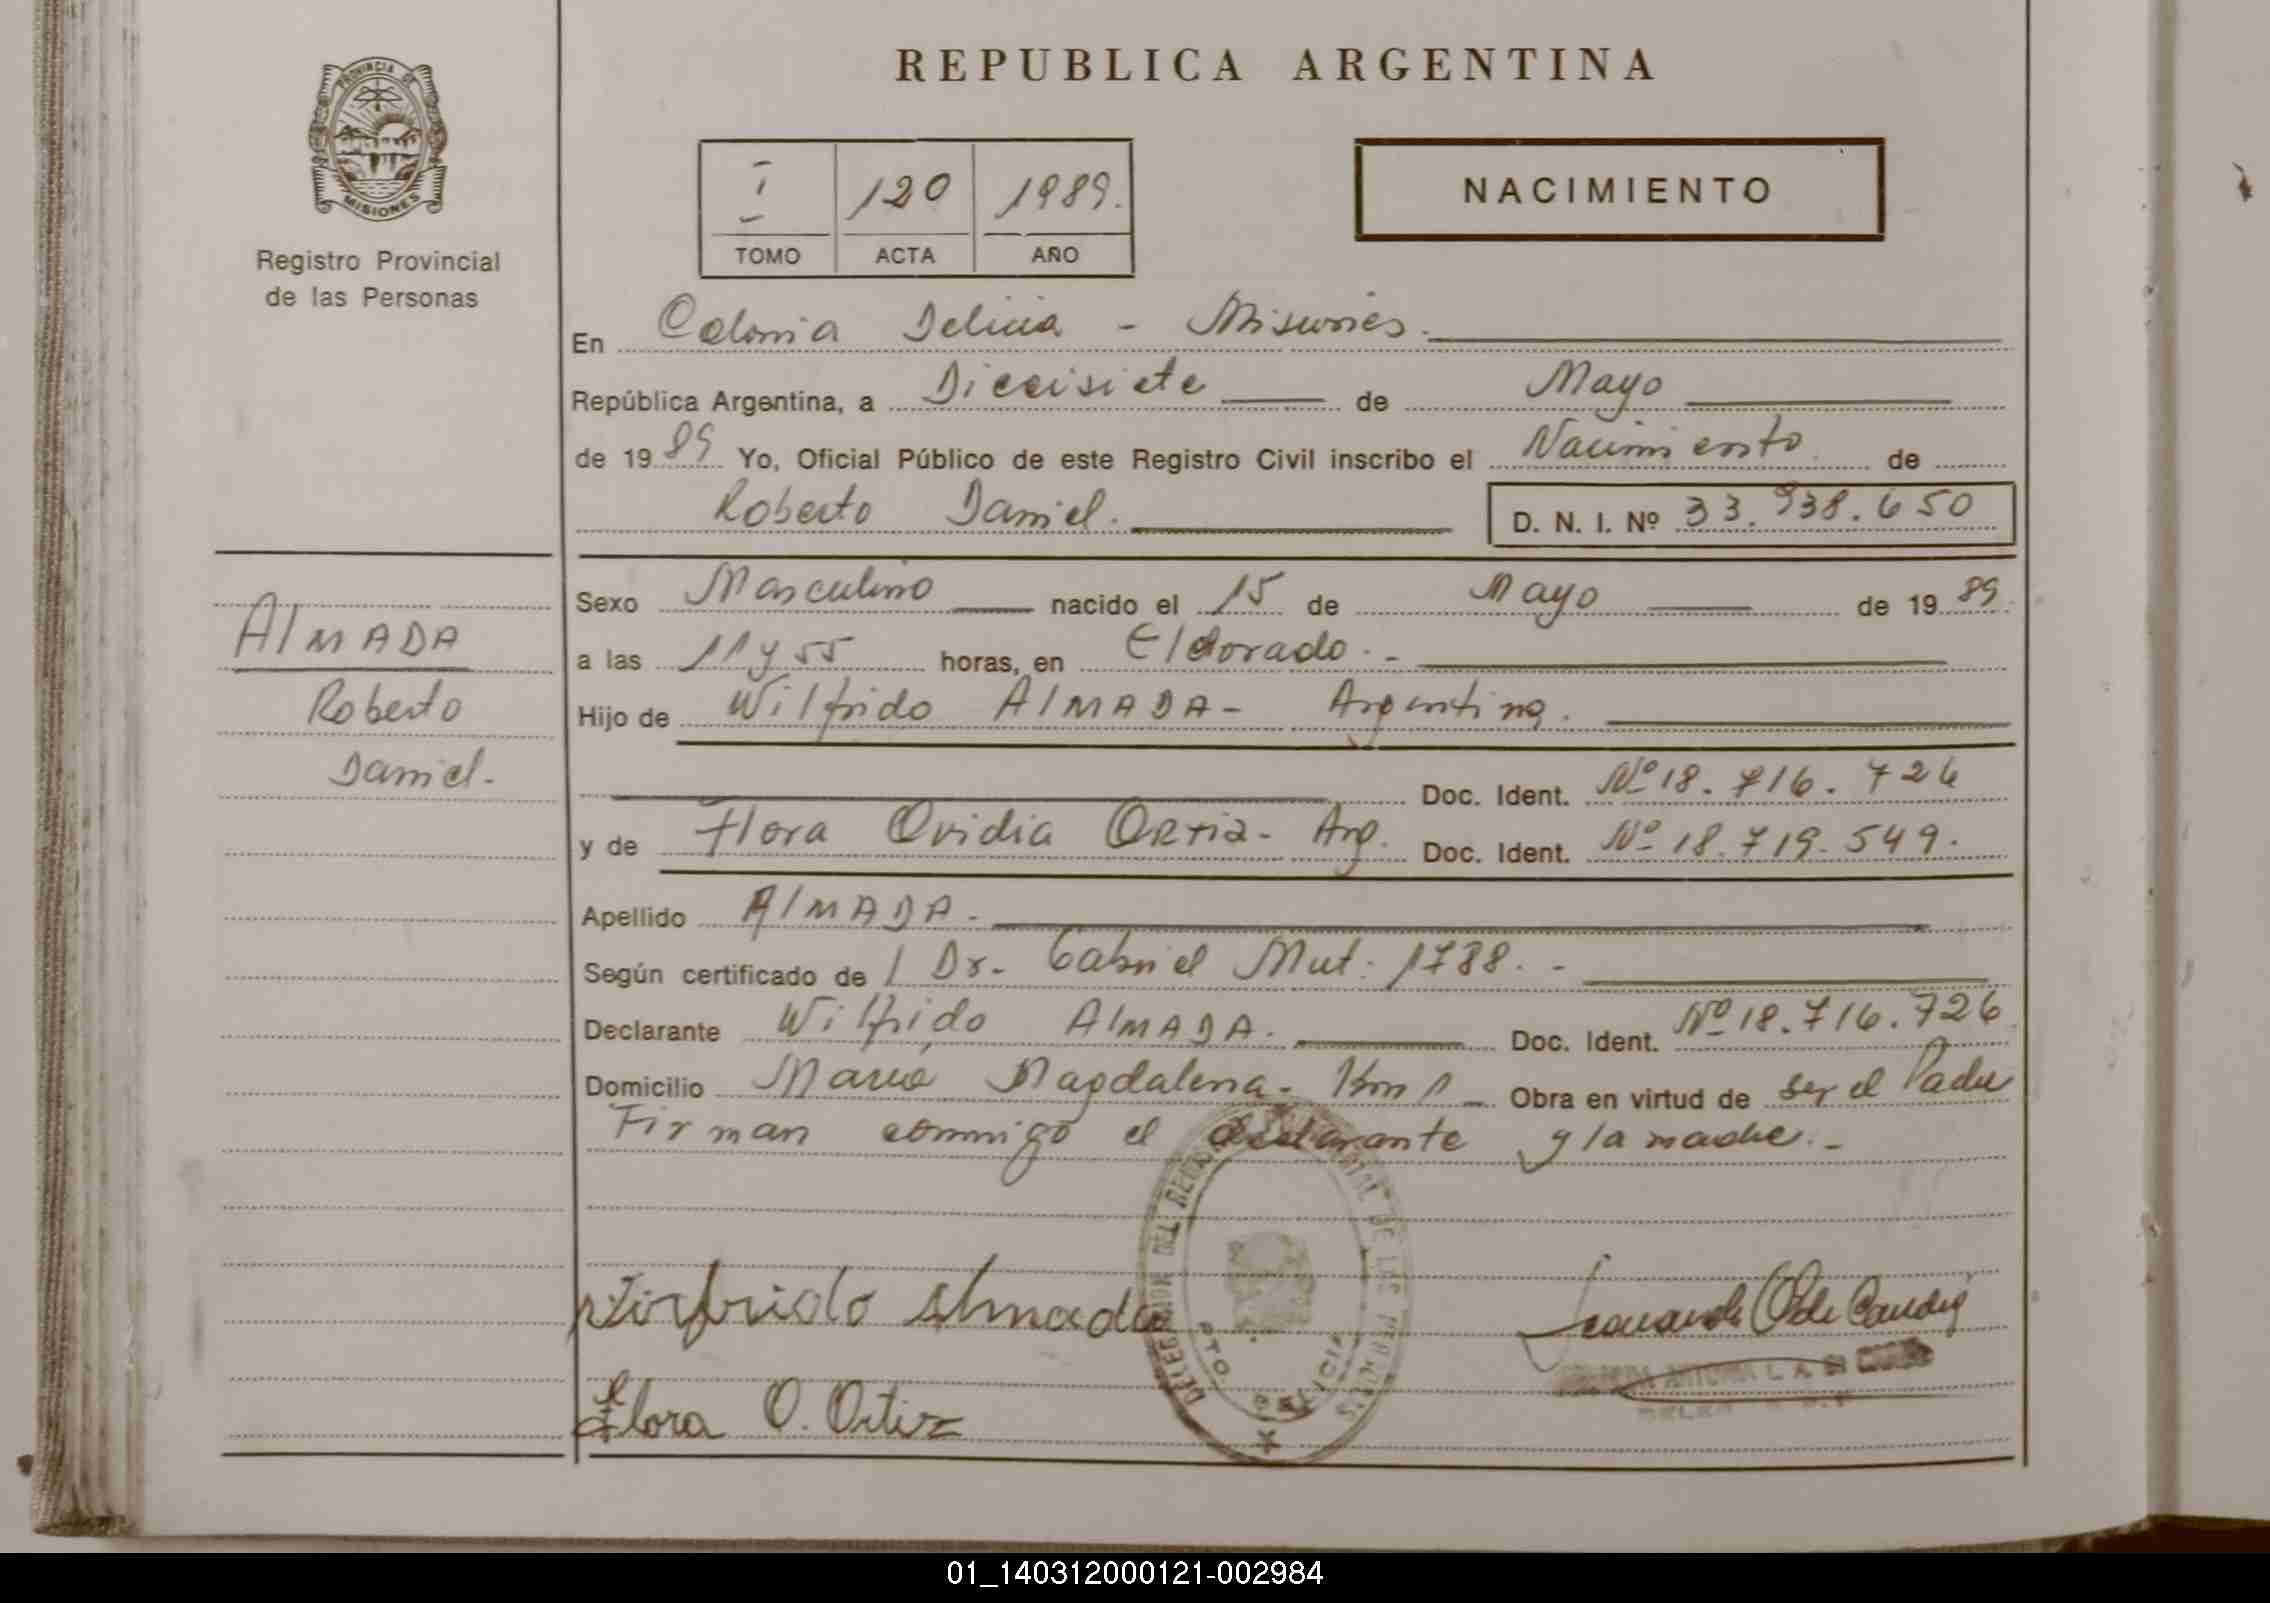 REPUBLICA ARGENTINA
PROVINCIA DE
MISIONES
Registro Provincial
de las Personas
I 120 1989.
TOMO ACTA AÑO
NACIMIENTO
En Colonia Delicia - Misiones.
República Argentina, a Diecisiete de Mayo
de 1989 Yo, Oficial Público de este Registro Civil inscribo el Nacimiento de
Roberto Daniel. D. N. I. Nº 33.938.650
Sexo Masculino nacido el 15 de Mayo de 1989.
a las 11 y 55 horas, en Eldorado.-
Hijo de Wilfrido AlMADA- Argentina.
Doc. Ident. Nº 18.716.726
y de Flora Ovidia ORtiz- Arg. Doc. Ident. Nº 18.719.549.
Apellido AlMADA.
Según certificado de Dr. Gabriel Mut. 1788.-
Declarante Wilfrido AlMADA. Doc. Ident. Nº 18.716.726
Domicilio María Magdalena- Km Obra en virtud de ser el Padre
Firman conmigo el declarante y la madre.-
AlMADA
Roberto
Daniel.
Wilfrido Almada
Flora O. Ortiz
DELEGACION DEL REGISTRO DE LAS PERSONAS
PTO. DELICIA
01_140312000121-002984